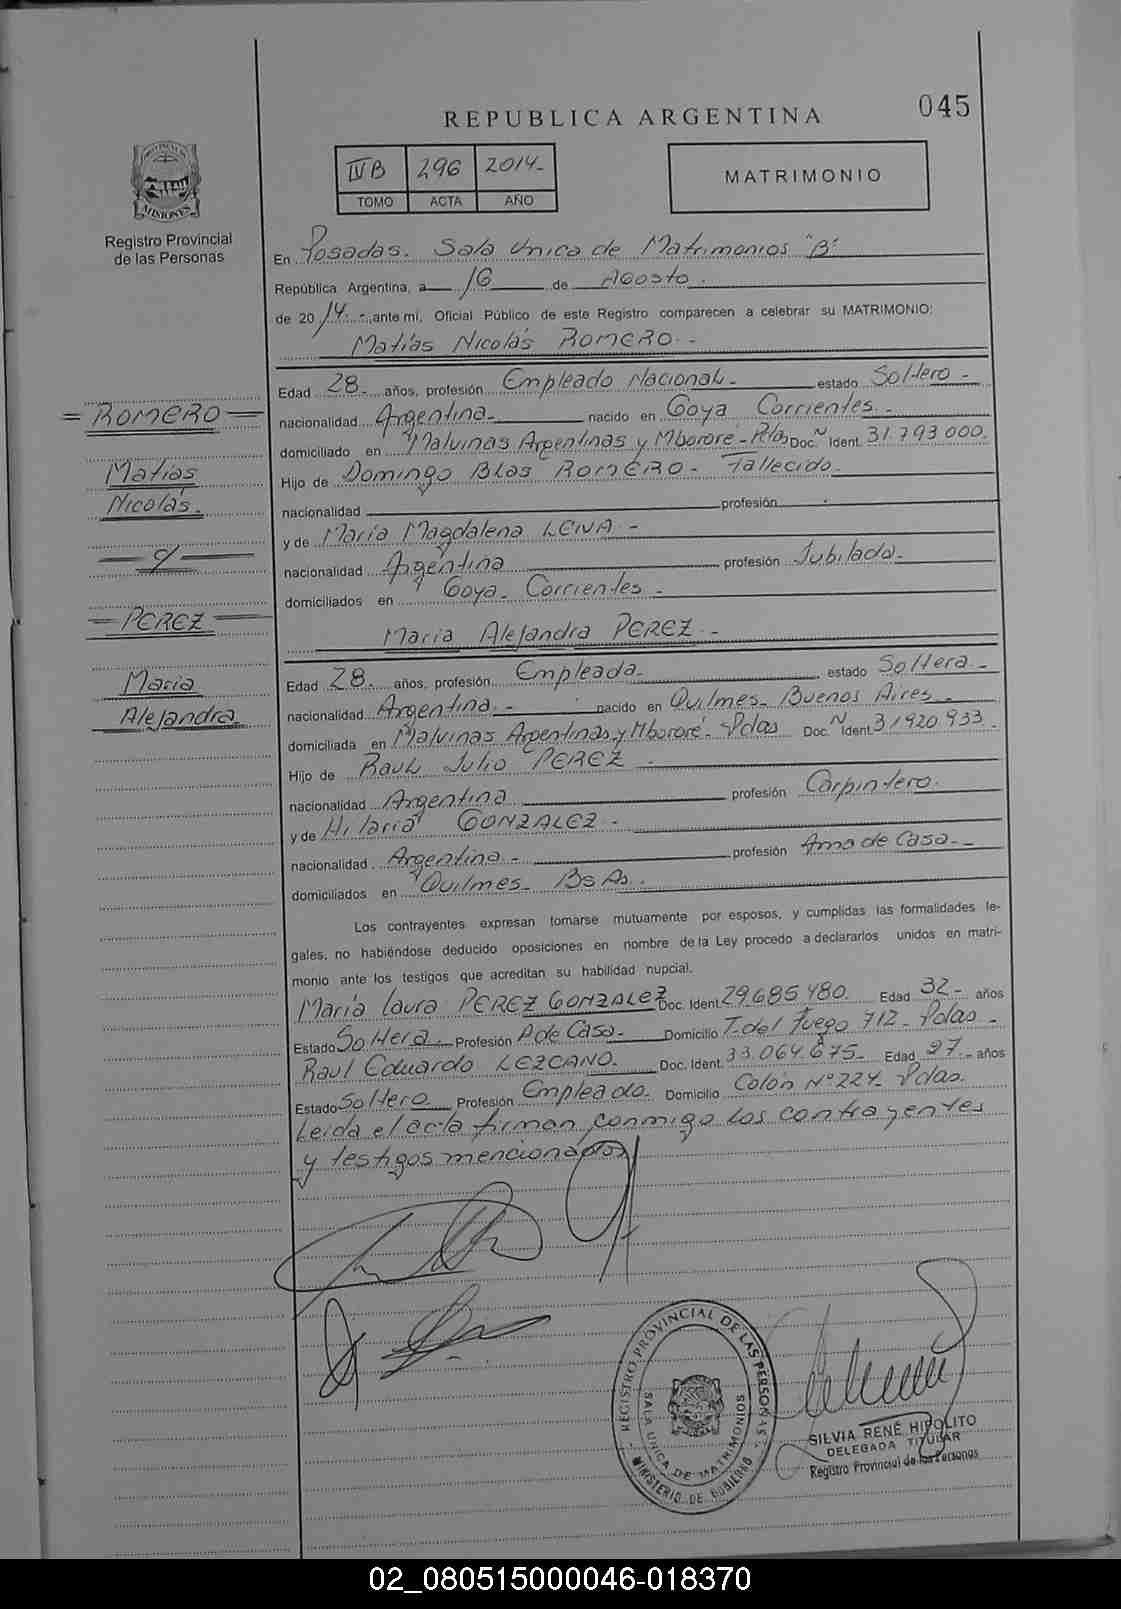 045
REPUBLICA ARGENTINA
IVB 296 2014-
TOMO ACTA AÑO
MATRIMONIO
PROVINCIA DE
MISIONES
Registro Provincial
de las Personas
En Posadas. Sala Unica de Matrimonios "B"
República Argentina, a 16 de Agosto.
de 2014.- ante mí, Oficial Público de este Registro comparecen a celebrar su MATRIMONIO:
Matías Nicolás ROMERO.-
Edad 28.- años, profesión Empleado Nacional.- estado Soltero-
nacionalidad Argentina.- nacido en Goya Corrientes.-
domiciliado en Malvinas Argentinas y Mbororé-Pdas Doc. N Ident. 31.793.000.
Hijo de Domingo Blas ROMERO- Fallecido.
nacionalidad profesión
y de María Magdalena LEIVA-
nacionalidad Argentina profesión Jubilada-
domiciliados en Goya- Corrientes-
=ROMERO=
Matías
Nicolás.
y
=PEREZ=
María
Alejandra
María Alejandra PEREZ.-
Edad 28. años, profesión Empleada estado Soltera-
nacionalidad Argentina.- nacido en Quilmes- Buenos Aires-
domiciliada en Malvinas Argentinas y Mbororé-Pdas Doc. N Ident 31920933
Hijo de Raul Julio PEREZ
nacionalidad Argentina profesión Carpintero.
y de Hilaria GONZALEZ-
nacionalidad. Argentina.- profesión Ama de Casa.-
domiciliados en Quilmes- Bs As.
Los contrayentes expresan tomarse mutuamente por esposos, y cumplidas las formalidades le-
gales, no habiéndose deducido oposiciones en nombre de la Ley procedo a declararlos unidos en matri-
monio ante los testigos que acreditan su habilidad nupcial.
María Laura PEREZ GONZALEZ Doc. Ident. 29.685.480. Edad 32- años
Estado Soltera.- Profesión A de Casa- Domicilio T. del Fuego 712- Pdas-
Raul Eduardo LEZCANO. Doc. Ident. 33.064.675- Edad 27.- años
Estado Soltero Profesión Empleado. Domicilio Colón Nº 224- Pdas.
Leída el acta firman conmigo los contrayentes
y testigos mencionados
REGISTRO PROVINCIAL DE LAS PERSONAS
SALA UNICA DE MATRIMONIOS
MINISTERIO DE GOBIERNO
SILVIA RENÉ HIPOLITO
DELEGADA TITULAR
Registro Provincial de las Personas
02_080515000046-018370